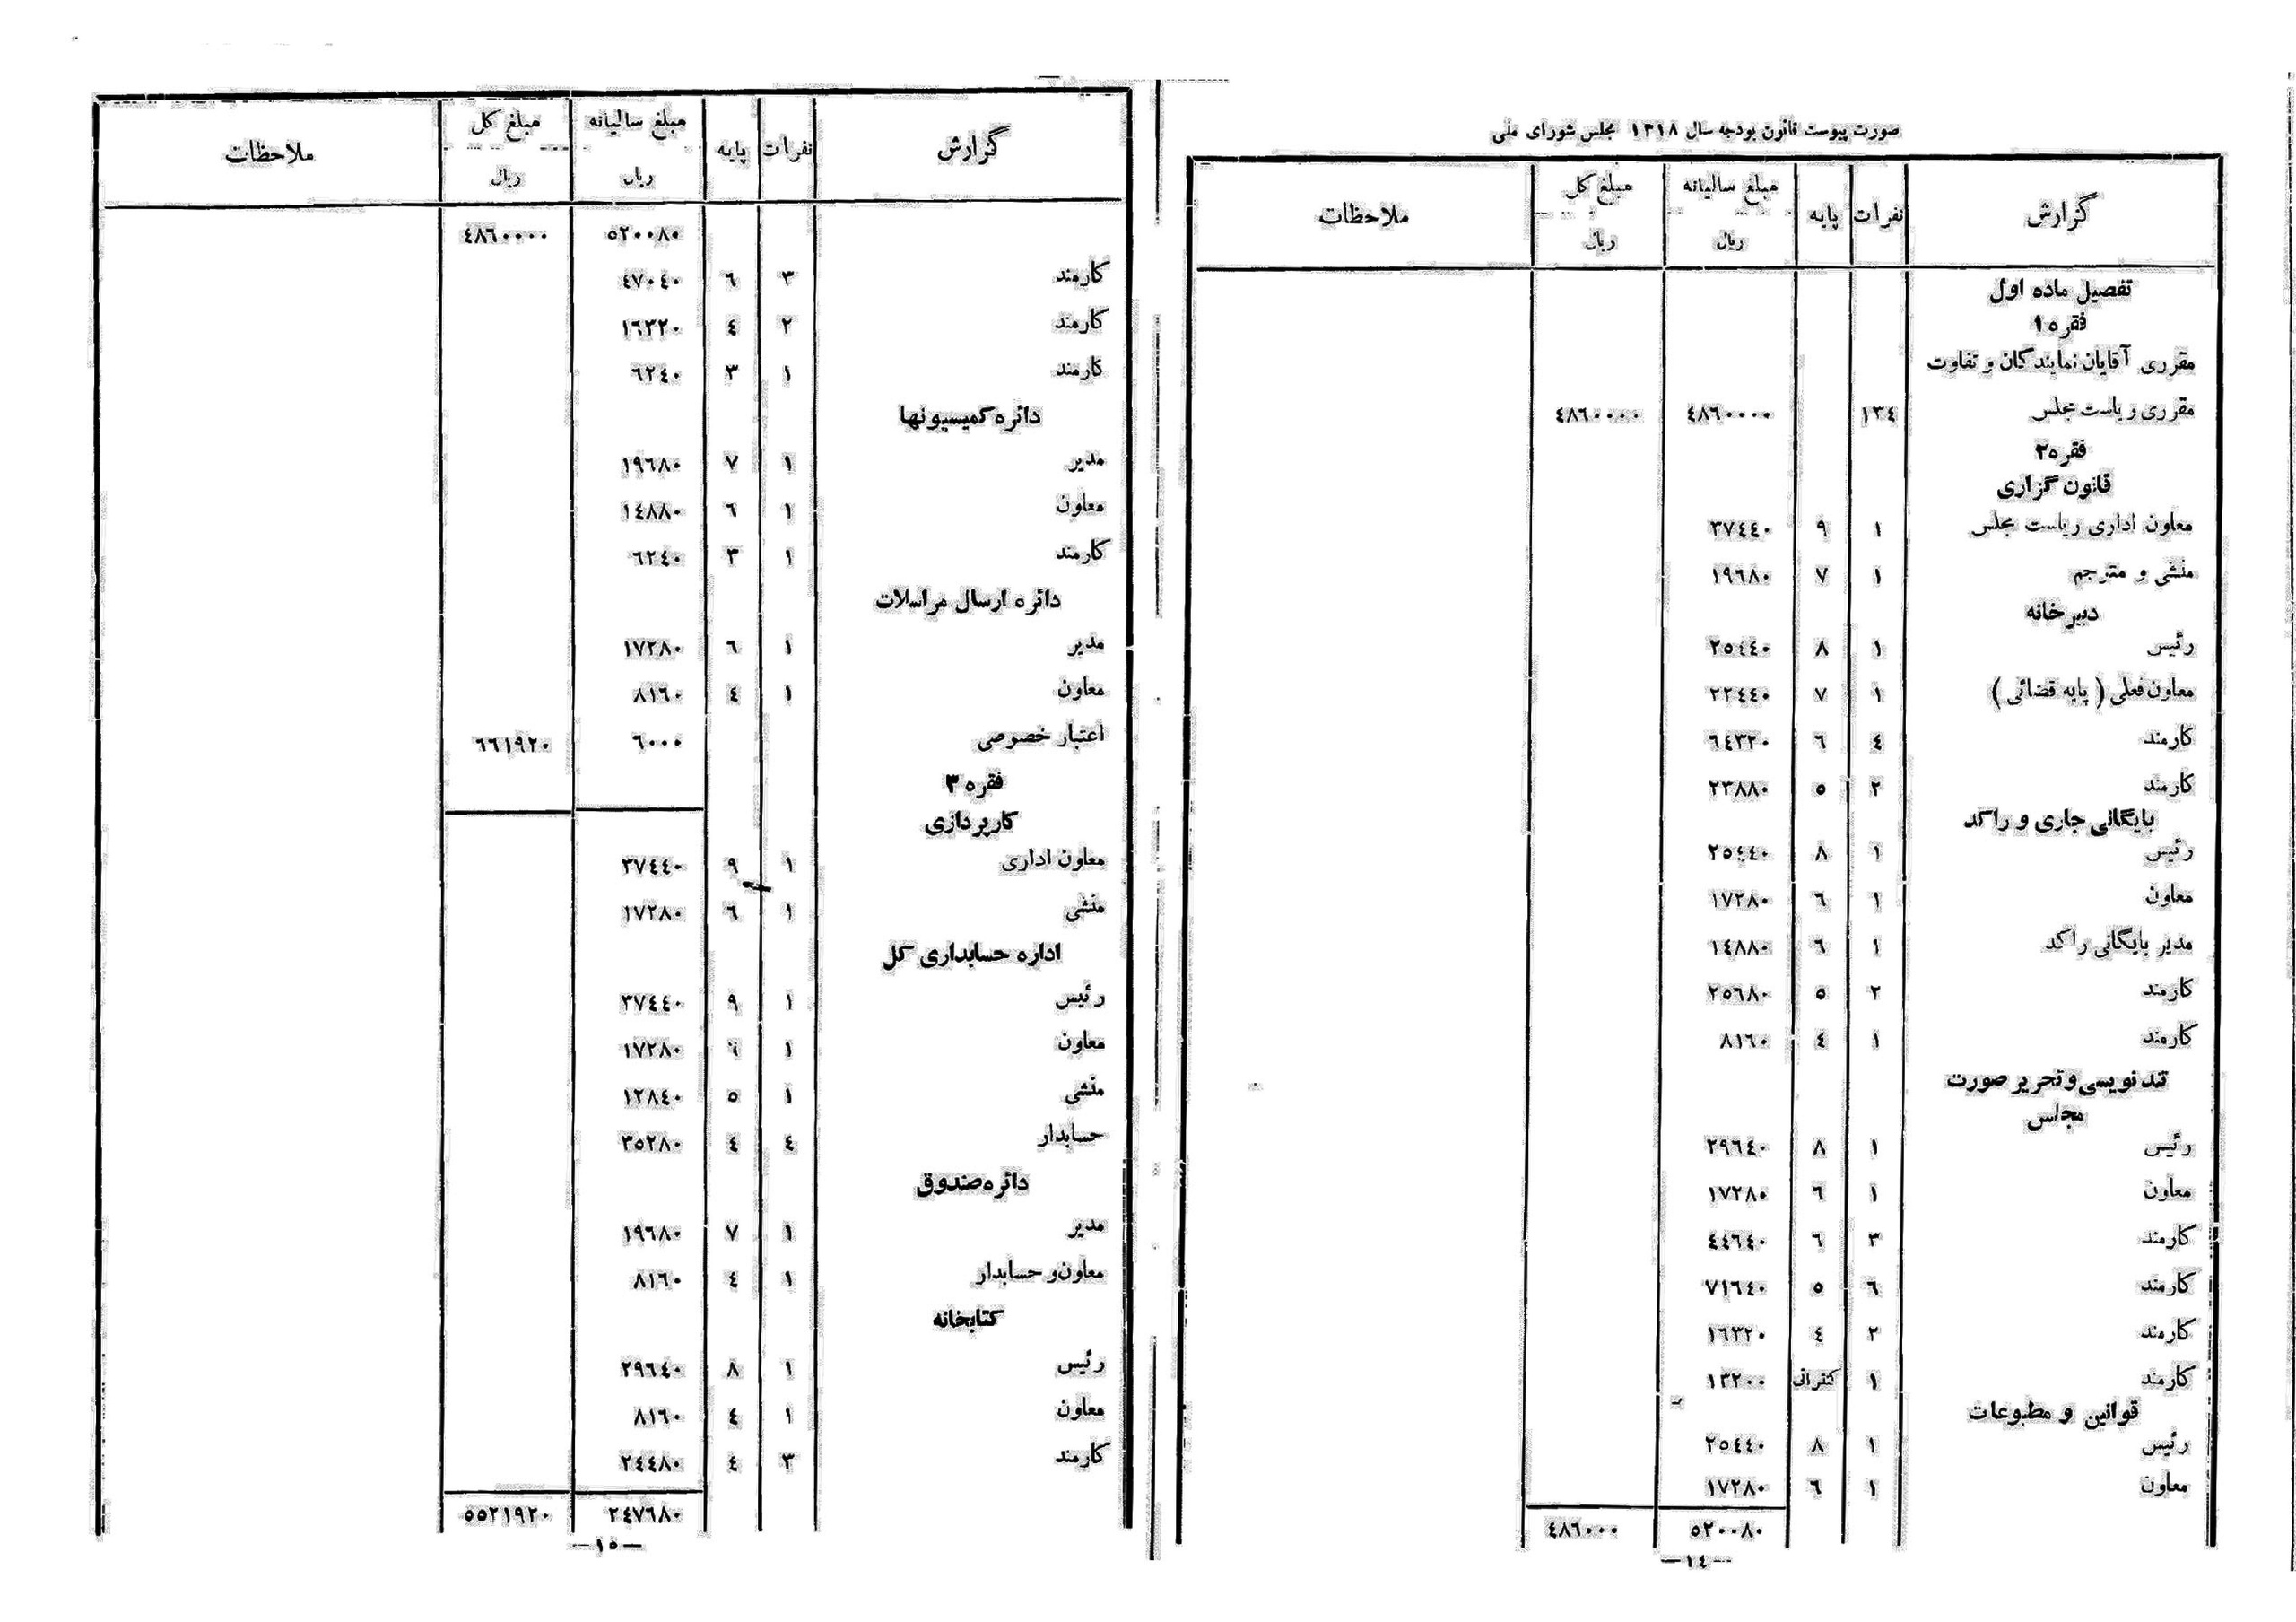 صورت پیوست قانون بودجه سال ۱۳۱۸ مجلس شورای ملی
گزارش نفرات پایه مبلغ سالیانه ریال مبلغ کل ریال ملاحظات
تفصیل ماده اول
فقره ۱
مقرری آقایان نمایندگان و تفاوت
مقرری ریاست مجلس ۱۳٤ ٤۸٦۰۰۰۰ ٤۸٦۰۰۰۰
فقره ۲
قانون گزاری
معاون اداری ریاست مجلس ۱ ۹ ۳۷٤٤۰
منشی و مترجم ۱ ۷ ۱۹٦۸۰
دبیرخانه
رئیس ۱ ۸ ۲۵٤٤۰
معاون فعلی ( پایه قضائی ) ۱ ۷ ۲۲٤٤۰
کارمند ٤ ٦ ٦٤۳۲۰
کارمند ۲ ۵ ۲۳۸۸۰
بایگانی جاری و راکد
رئیس ۱ ۸ ۲۵٤٤۰
معاون ۱ ٦ ۱۷۲۸۰
مدیر بایگانی راکد ۱ ٦ ۱٤۸۸۰
کارمند ۲ ۵ ۲۵٦۸۰
کارمند ۱ ٤ ۸۱٦۰
تند نویسی و تحریر صورت
مجلس
رئیس ۱ ۸ ۲۹٦٤۰
معاون ۱ ٦ ۱۷۲۸۰
کارمند ۳ ٦ ٤٤٦٤۰
کارمند ٦ ۵ ۷۱٦٤۰
کارمند ۲ ٤ ۱٦۳۲۰
کارمند ۱ کنتراتی ۱۳۲۰۰
قوانین و مطبوعات
رئیس ۱ ۸ ۲۵٤٤۰
معاون ۱ ٦ ۱۷۲۸۰
۵۲۰۰۸۰ ٤۸٦۰۰۰
—۱٤—
گزارش نفرات پایه مبلغ سالیانه ریال مبلغ کل ریال ملاحظات
۵۲۰۰۸۰ ٤۸٦۰۰۰۰
کارمند ۳ ٦ ٤۷۰٤۰
کارمند ۲ ٤ ۱٦۳۲۰
کارمند ۱ ۳ ٦۲٤۰
دائره کمیسیونها
مدیر ۱ ۷ ۱۹٦۸۰
معاون ۱ ٦ ۱٤۸۸۰
کارمند ۱ ۳ ٦۲٤۰
دائره ارسال مراسلات
مدیر ۱ ٦ ۱۷۲۸۰
معاون ۱ ٤ ۸۱٦۰
اعتبار خصوصی ٦۰۰۰ ٦٦۱۹۲۰
فقره ۳
کارپردازی
معاون اداری ۱ ۹ ۳۷٤٤۰
منشی ۱ ٦ ۱۷۲۸۰
اداره حسابداری کل
رئیس ۱ ۹ ۳۷٤٤۰
معاون ۱ ٦ ۱۷۲۸۰
منشی ۱ ۵ ۱۲۸٤۰
حسابدار ٤ ٤ ۳۵۲۸۰
دائره صندوق
مدیر ۱ ۷ ۱۹٦۸۰
معاون و حسابدار ۱ ٤ ۸۱٦۰
کتابخانه
رئیس ۱ ۸ ۲۹٦٤۰
معاون ۱ ٤ ۸۱٦۰
کارمند ۳ ٤ ۲٤٤۸۰
۲٤۷٦۸۰ ۵۵۲۱۹۲۰
—۱۵—